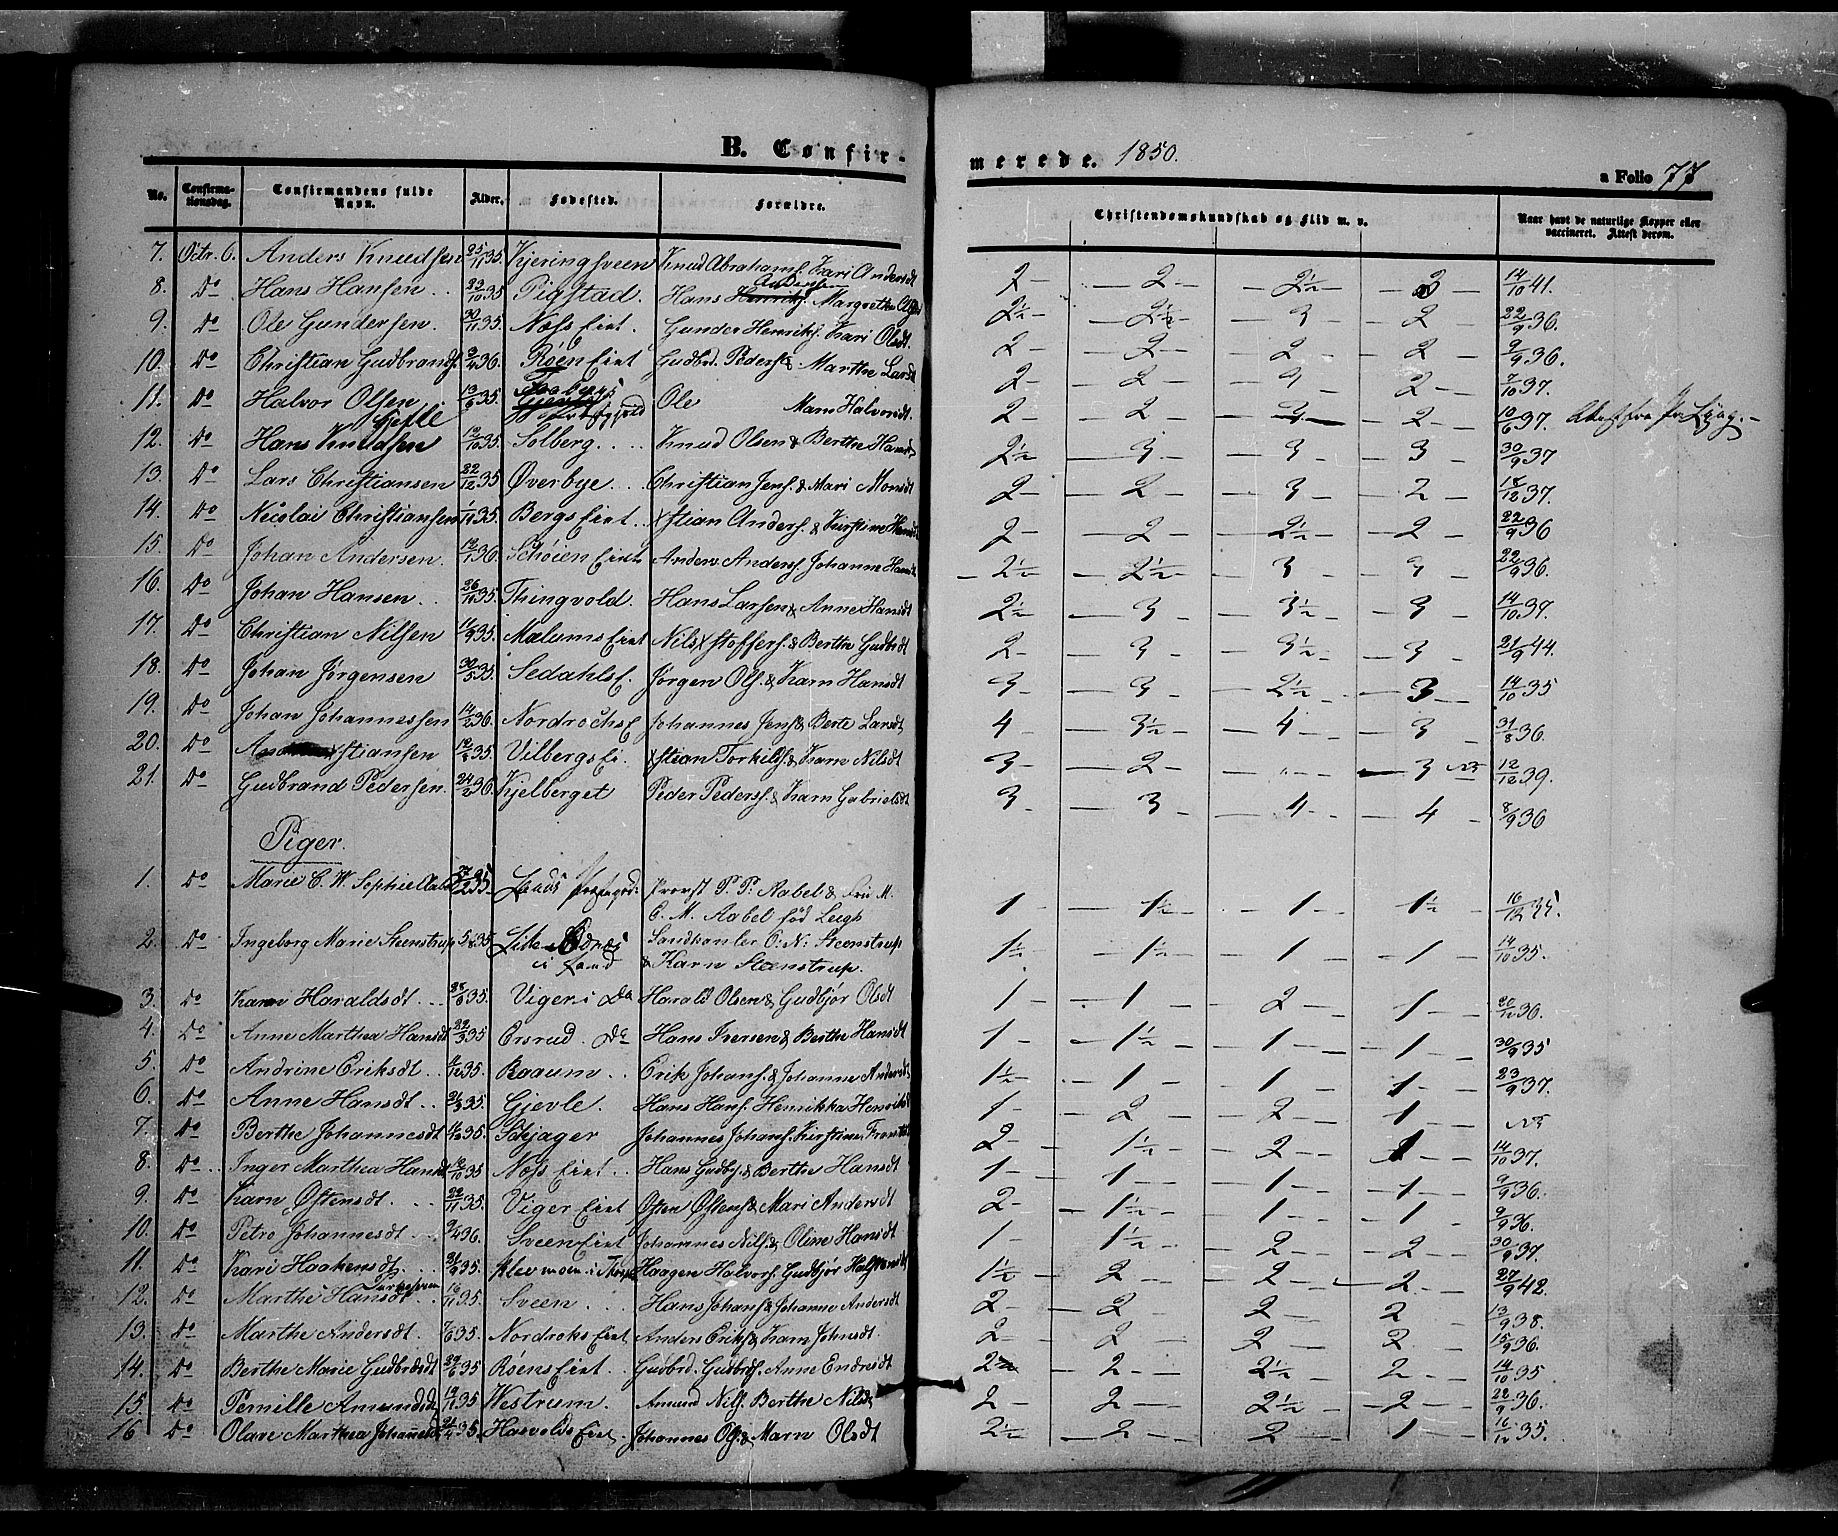 B. Confir-
merede. 1850.
a Folio 77
No. Confirma-tionsdag. Confirmandens fulde Navn. Alder. Fødested. Forældre. Christendomskundskab og Flid m. v. Naar havt de naturlige Kopper eller vaccineret. Attest derom.
7. Octr. 6. Anders Knudsen 25/11 35. Kjeringsveen Knud Abrahams. Kari Andersdt 2 - 2 - 2½ - 3 14/10 41.
8. Do Hans Hansen 22/10 35 Pigstad. Hans Andersen Margrethe 2½ - 2½ - 3 - 2 22/9 36.
9. Do Ole Gundersen. 30/11 35. Næss Eiet. Gunder Henriks. Kari Olsdt. 2 - 2 - 2 - 2 9/9 36.
10. Do Christian Gudbrands. 2/4 36. Røen Eiet Gudbrd. Peders & Marthe Larsdt 2 - 2 - 3 - 2 7/10 37.
11. Do Halvor Olsen 13/6 35 Ole Maria Halvorsdt. 2 - 2 - 3 - 2 10/6 37.
12. Do Hans Knudsen Gjefle 12/10 35. Solberg. Knud Olsen & Berthe Hansdt 2½ - 3 - 3 - 3 30/9 37
13. Do Lars Christiansen 22/12 35 Øverbye. Christian Jens. & Mari Monsdt 2 - 2 - 3 - 2 18/12 37.
14. Do Nicolai Christiansen 35. Bergs Eiet. Xstian Anders. & Kirstine Hansdt 2 - 2 - 2½ - 2 22/9 36
15. Do Johan Andersen. 12/1 36. Schøien Eiet Anders Anders. Johanne 2½ - 2½ - 3 - 3 22/9 36.
16. Do Johan Hansen. 26/10 35. Thingvold. Hans Larsen & Anne Hansdt 2½ - 3 - 3½ - 3 14/10 37.
17. Do Christian Nilsen 11/9 35. Mælums Eiet Nils Xstoffers. & Berthe Gudbrdt 2 - 3 - 3½ - 3 21/9 44.
18. Do Johan Jørgensen 30/5 35. Sedahls E. Jørgen Ols. & Karn Hansdt 3 - 3 - 2½ - 3 14/10 35
19. Do Johan Johannessen 14/2 36. Nordrochs E Johannes Jens & Berte Larsdt 4 - 3½ - 4 - 3 31/8 36.
20. Do Xstiansen 12/2 35. Vilbergs Ei. Xstian Torkilds. & Karn Nilsdt 3 - 2 - 3 12/12 39.
21. Do Gudbrand Pedersen. 24/2 36. Kjelberget Peder Peders. & Karn Gabrielsdt 3 - 3 - 4 - 4 8/9 36
Piger.
1. Do Marie C. W. Sophie Aabel 35. Lands Præstegrd. Provst P. P. Aabel & Fru M. 1 - 1½ - 1 - 1½ 16/12 35.
C. M. Aabel fød Leigh
2. Do Ingeborg Marie Steenstrup 5/8 35. Lille Odnæs Landhanler C. N. Steenstrup 1½ - 1½ - 1 - 1 14/10 35.
i Land & Karn Steenstrup.
3. Do Karn Haraldsdt. 35. Viger i Do Harald Olsen & Gudbjør Olsdt 1 - 1 - 2 - 1 20/12 36.
4. Do Anne Marthea Hansdt 22/3 35 Ersrud. Do Hans Iversen & Berthe Hansdt 1 - 1½ - 1 - 1 30/9 35
5. Do Andrine Eriksdt. 35. Raaum. Erik Johans. & Johanne Andersdt 1½ - 1 - 1 - 1 23/9 37.
6. Do Anne Hansdt. 35. Gjevle. Hans Hans. Henrikka Henriksdt 1 - 2 - 2 - 1
7. Do Berthe Johannesdt 35. Skjager Johannes Johans. Kirstine 2 - 1½ - 2 - 1 14/10 37.
8. Do Inger Marthea Hansdt 12/10 35 Næss Eiet. Hans Gudbr. & Berthe Hansdt 1 - 1 - 1 - 1 9/9 36.
9. Do Karn Østensdt. 22/11 35. Viger Eiet Østen Østens & Mari Andersdt 2 - 1½ - 1 - 1 9/9 36.
10. Do Petro Johannesdt. 9/4 36. Sveen Eiet Johannes Nils. & Oline Hansdt 1 - 1½ - 2 - 2 30/9 37.
11. Do Kari Haakensdt. 21/9 35. Haagen Halvors. Gudbjør Halvorsdt 1½ - 2 - 2 - 2 27/9 42.
12. Do Marthe Hansdt. 16/11 35. Sveen Hans Johans. & Johanne Andersdt 2 - 2 - 2 2 13/9 38.
13. Do Marthe Andersdt. 7/6 35. Nordroks Eiet Anders Eriks. & Karn Johnsdt. 2 - 2 - 2 2 15/9 36.
14. Do Berthe Marie Gudbrdsdt 29/6 35 Røens Eiet. Gudbrd. Gudbrds. Anne Endresdt 2 - 2 - 2½ - 2 14/10 35
15 Do Pernille Amundsdt 19/11 35 Westrum. Amund Nils. Berthe Nilsdt 2 - 2 - 2½ - 2 22/9 36.
16 Do Olave Marthea Johannesdt 35. Hasvolds Eiet. Johannes Ols. & Marn Olsdt 2½ - 2 - 2 1 16/12 35.